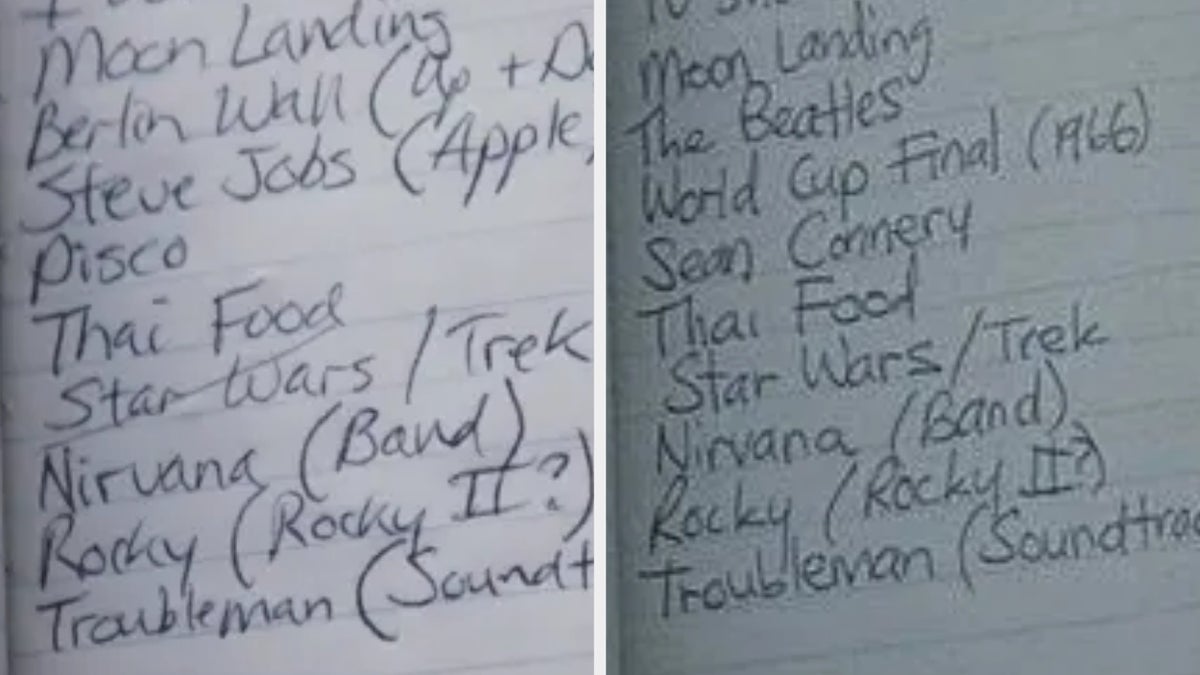 Moon Landing
Berlin Wall (up +
Steve Jobs (Apple,
Disco
Thai Food
Star Wars / Trek
Nirvana (Band)
Rocky (Rocky II?)
Troubleman (Soundt
Moon Landing
The Beatles
World Cup Final (1966)
Sean Connery
Thai Food
Star Wars/Trek
Nirvana (Band)
Rocky (Rocky II?)
Troubleman (Soundtrac